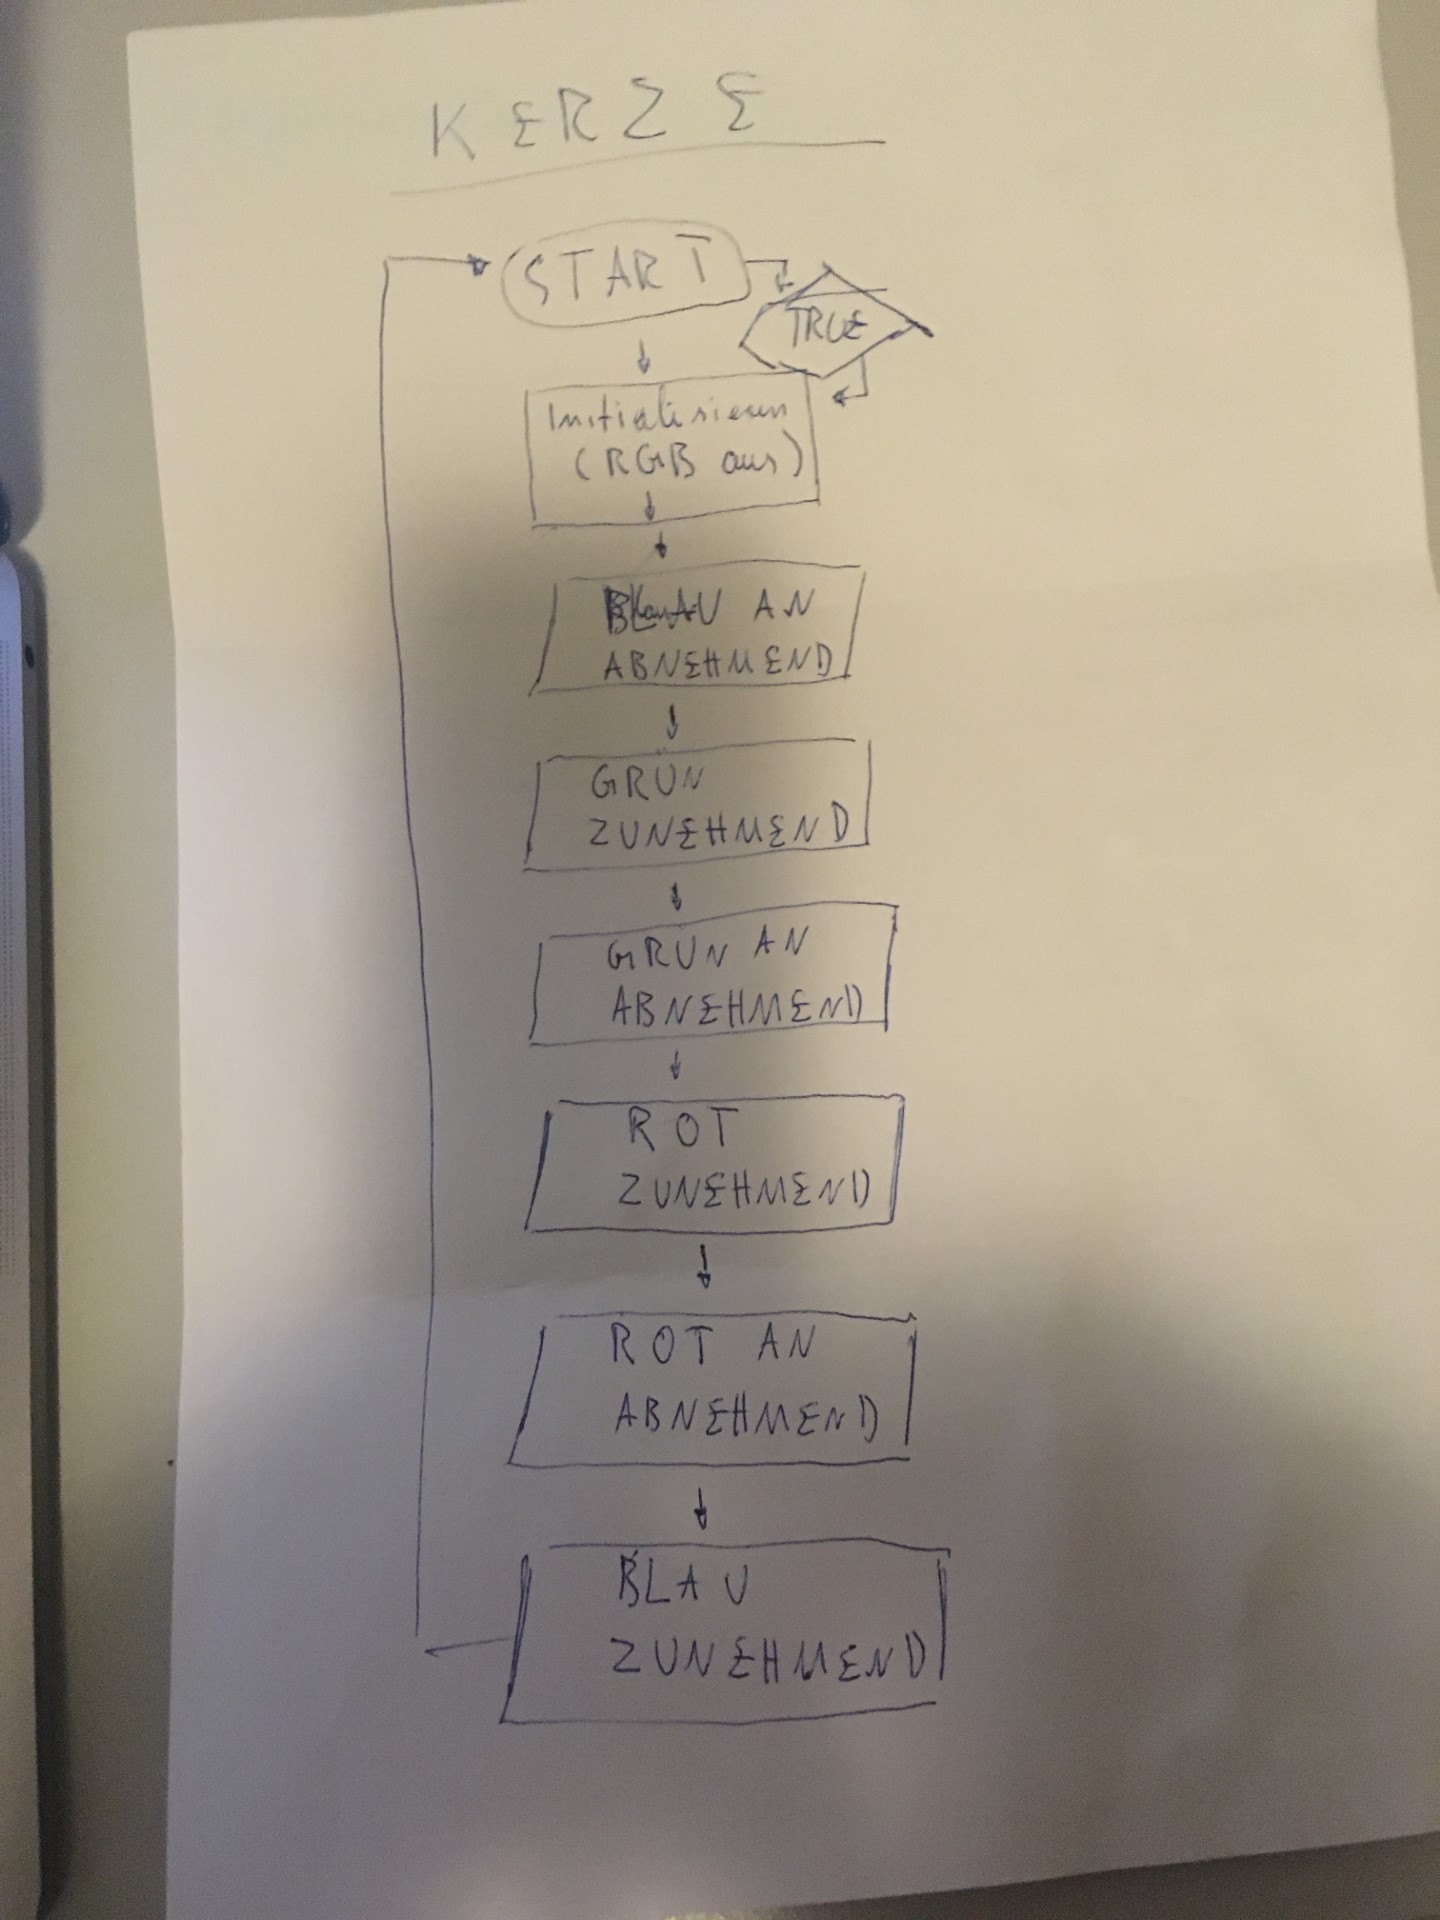 KERZE
START
TRUE
Initialisieren
(RGB aus)
BLAU AN
ABNEHMEND
GRÜN
ZUNEHMEND
GRÜN AN
ABNEHMEND
ROT
ZUNEHMEND
ROT AN
ABNEHMEND
BLAU
ZUNEHMEND